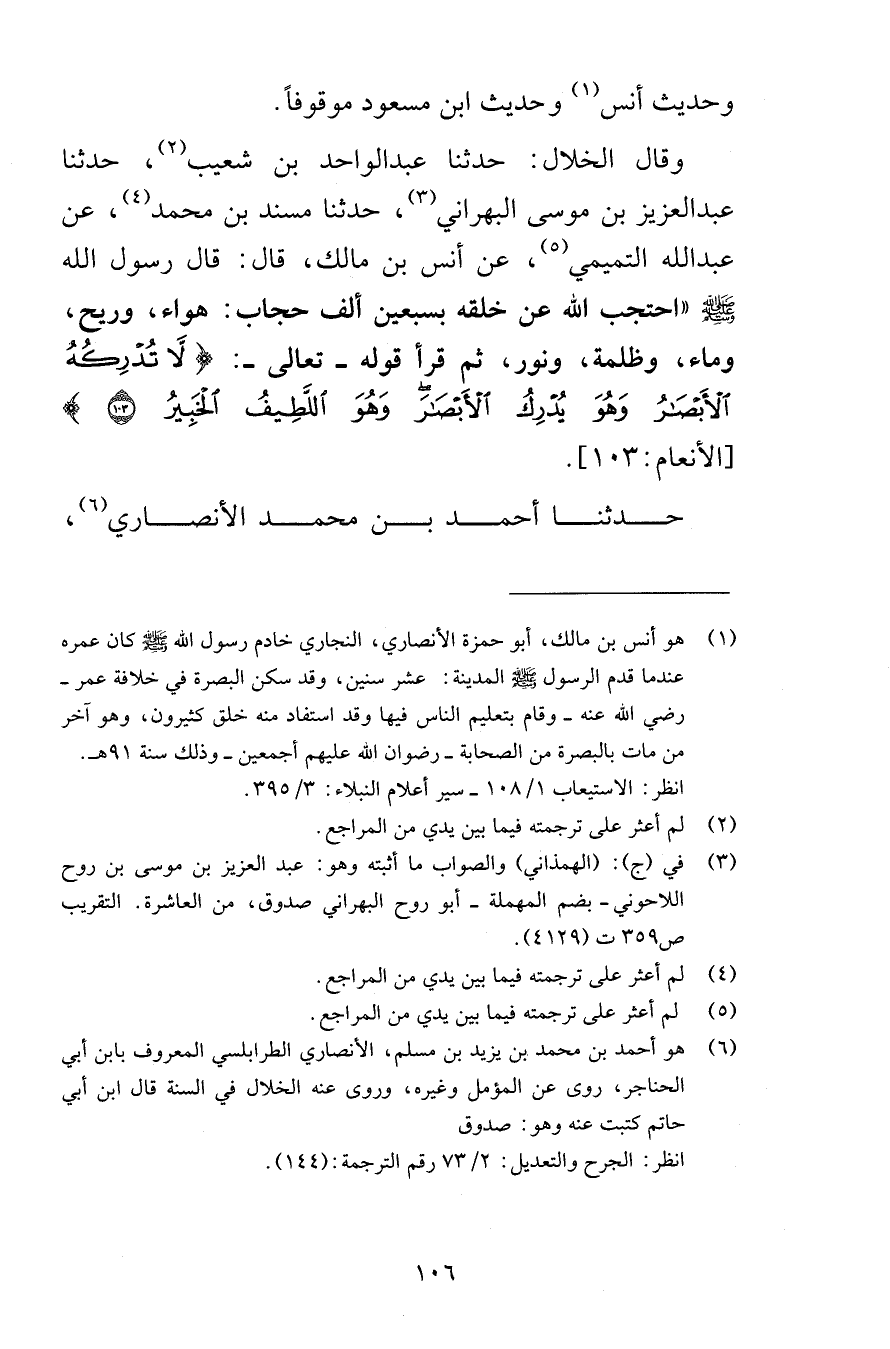 وحديث أنس(١) وحديث ابن مسعود موقوفاً.
وقال الخلال: حدثنا عبدالواحد بن شعيب(٢)، حدثنا
عبدالعزيز بن موسى البهراني(٣)، حدثنا مسند بن محمد(٤)، عن
عبدالله التميمي(٥)، عن أنس بن مالك، قال: قال رسول الله
ﷺ «احتجب الله عن خلقه بسبعين ألف حجاب: هواء، وريح،
وماء، وظلمة، ونور، ثم قرأ قوله ـ تعالى ـ: ﴿ لَّا تُدْرِكُهُ
ٱلْأَبْصَٰرُ وَهُوَ يُدْرِكُ ٱلْأَبْصَٰرَۖ وَهُوَ ٱللَّطِيفُ ٱلْخَبِيرُ ١٠٣ ﴾
[الأنعام: ١٠٣].
حـدثنـا أحمـد بـن محمـد الأنصـاري(٦)،
(١) هو أنس بن مالك، أبو حمزة الأنصاري، النجاري خادم رسول الله ﷺ كان عمره
عندما قدم الرسول ﷺ المدينة: عشر سنين، وقد سكن البصرة في خلافة عمر ـ
رضي الله عنه ـ وقام بتعليم الناس فيها وقد استفاد منه خلق كثيرون، وهو آخر
من مات بالبصرة من الصحابة ـ رضوان الله عليهم أجمعين ـ وذلك سنة ٩١هـ.
انظر: الاستيعاب ١/ ١٠٨ ـ سير أعلام النبلاء: ٣/ ٣٩٥.
(٢) لم أعثر على ترجمته فيما بين يدي من المراجع.
(٣) في (ج): (الهمذاني) والصواب ما أثبته وهو: عبد العزيز بن موسى بن روح
اللاحوني ـ بضم المهملة ـ أبو روح البهراني صدوق، من العاشرة. التقريب
ص٣٥٩ ت (٤١٢٩).
(٤) لم أعثر على ترجمته فيما بين يدي من المراجع.
(٥) لم أعثر على ترجمته فيما بين يدي من المراجع.
(٦) هو أحمد بن محمد بن يزيد بن مسلم، الأنصاري الطرابلسي المعروف بابن أبي
الحناجر، روى عن المؤمل وغيره، وروى عنه الخلال في السنة قال ابن أبي
حاتم كتبت عنه وهو: صدوق
انظر: الجرح والتعديل: ٢/ ٧٣ رقم الترجمة: (١٤٤).
١٠٦